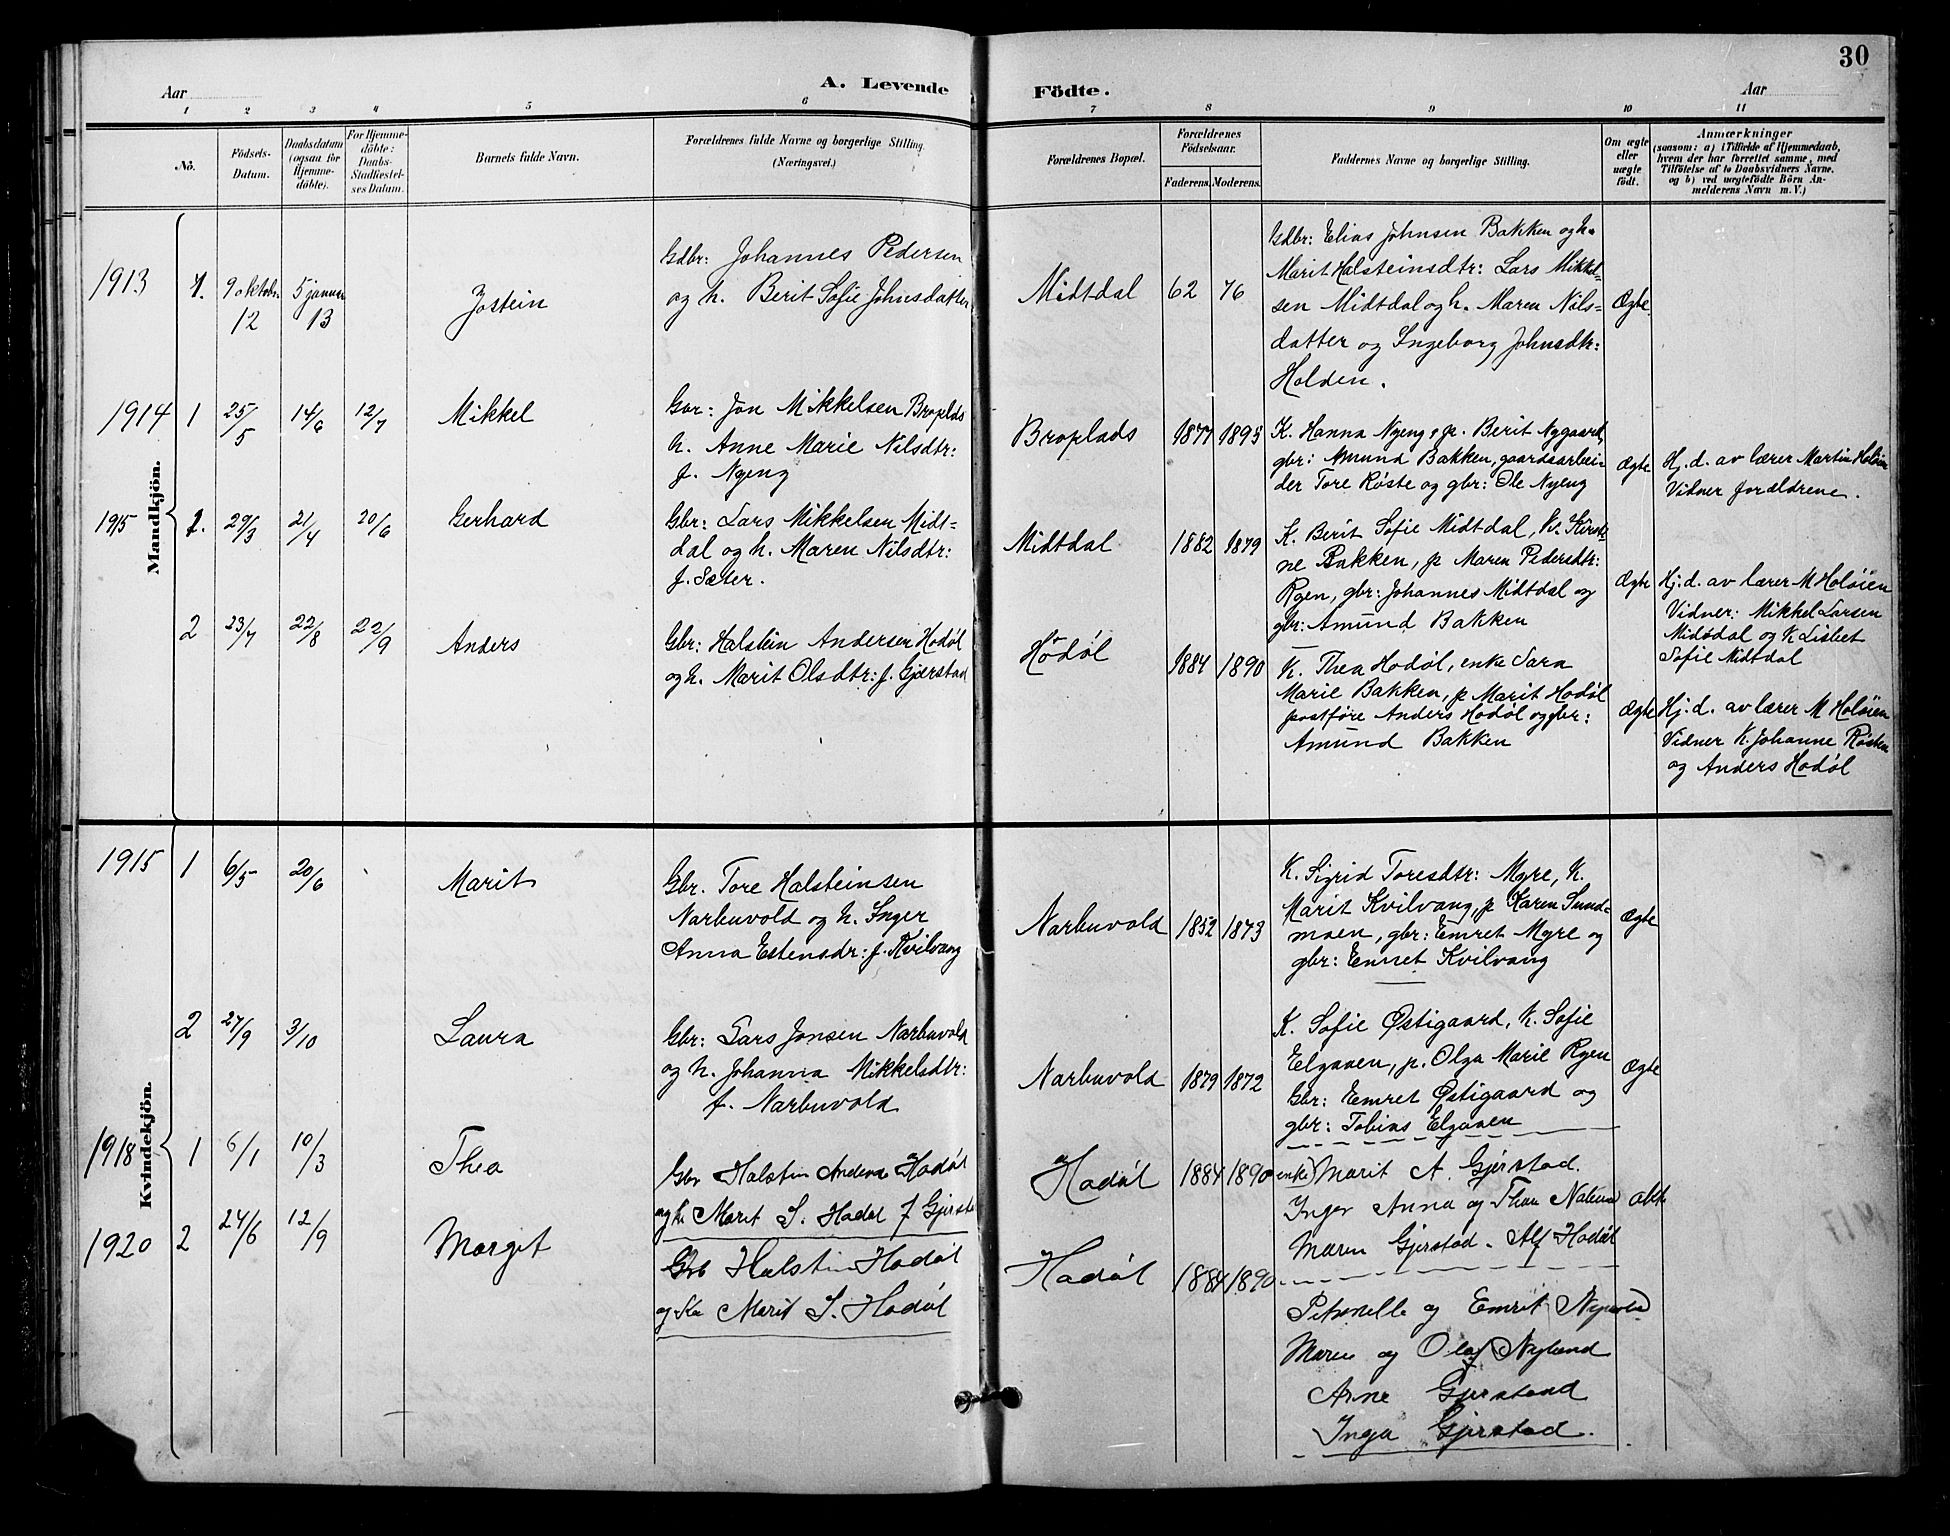 30
Aar
A. Levende
Födte.
Aar
1 2 3 4 5 6 7 8 9 10 11
Nö.
Födsels-
Datum.
Daabsdatum
(ogsaa for
Hjemme-
döbte).
For Hjemme-
döbte:
Daabs-
Stadfæstel-
ses Datum.
Barnets fulde Navn.
Forældrenes fulde Navne og borgerlige Stilling.
(Næringsvei.)
Forældrenes Bopæl.
Forældrenes
Födselsaar.
Faderens. Moderens.
Faddernes Navne og borgerlige Stilling.
Om ægte
eller
uægte
födt.
Anmærkninger
(saasom: a) i Tilfælde af Hjemmedaab,
hvem der har forrettet samme, med
Tilföielse af to Daabsvidners Navne.
og b) ved uægtefödte Börn An-
melderens Navn m. V.)
Mandkjön.
1913 1. 9 oktober
12
5 januar
13
Jostein
Gdbr: Johannes Pedersen
og h. Berit Sofie Johnsdatter
Midtdal 62 76
Gdbr: Elias Johnsen Bakken og h.
Marit Halsteinsdtr: Lars Mikkel-
sen Midtdal og h. Maren Nils-
datter og Ingeborg Johnsdtr:
Holden.
Ægte
1914 1 25/5 14/6 12/7 Mikkel
Gbr: Jon Mikkelsen Broplads
h. Anne Marie Nilsdtr:
f. Nyeng
Broplads 1877 1893
K. Hanna Nyeng, p. Berit Nygaard,
gbr: Amund Bakken, gaardsarbei-
der Tore Røste og gbr: Ole Nyeng
Ægte
Hj. d. av lærer Martin Holöien
Vidner forældrene.
1915 1. 29/3 21/4 20/6 Gerhard
Gbr: Lars Mikkelsen Midt-
dal og h. Maren Nilsdtr:
f. Sæter.
Midtdal 1882 1879
K. Berit Sofie Midtdal, k. Kirsti-
ne Bakken, p Maren Pedersdtr:
Ryen, gbr: Johannes Midtdal og
gbr: Amund Bakken
Ægte
Hj. d. av lærer M Holöien
Vidner: Mikkel Larsen
Midtdal og K Lisbet
Sofie Midtdal
2 23/7 22/8 22/9 Anders
Gbr: Halstein Andersen Hodøl
og h. Marit Olsdtr: f. Gjærstad
Hodøl 1884 1890
K. Thea Hodøl, enke Sara
Marie Bakken, p Marit Hodøl
postføre Anders Hodøl og gbr:
Amund Bakken
Ægte
Hj. d. av lærer M Holöien
Vidner K. Johanne Røsten
og Anders Hodøl
Kvindekjön.
1915 1 6/5 20/6 Marit
Gbr. Tore Halsteinsen
Narbuvold og h. Inger
Anna Estensdr: f. Kvilvang
Narbuvold 1852 1873
K. Sigrid Toresdtr: Myre, K.
Marit Kvilvang, p Karen Sund-
moen, gbr: Emret Myre og
gbr: Emret Kvilvang
Ægte
2 27/9 3/10 Laura
Gbr: Lars Jonsen Narbuvold
og h. Johanna Mikkelsdtr:
f. Narbuvold
Narbuvold 1879 1872
K. Sofie Østigaard, K. Sofie
Elgaaen, p. Olga Marie Ryen
Gbr: Emret Østigaard og
gbr: Tobias Elgaaen
Ægte
1918 1 6/1 10/3 Thea
Gbr Halstin Hodøl
og h. Marit S. Hodøl f Gjersta
Hodøl 1884 1890
enke) Marit A. Gjerstad.
Inger Anna og
Maren Gjerstad. Alf Hodøl
1920 2 24/6 12/9 Margit
Grb Halstin Hodøl
og Ka Marit S. Hodøl
Hodøl 1884 1890
Petronelle og Emrit
Maren og Olaf Nylend
Arne Gjerstad
Inga Gjerstad.